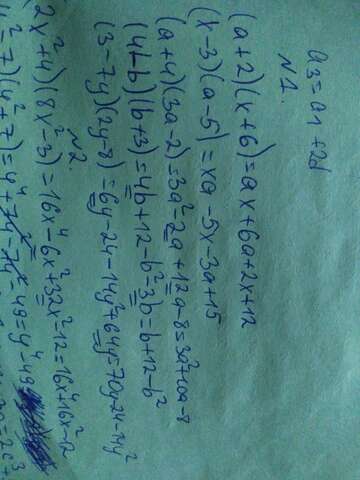 a3 = a1 + 2d
N1.
(a+2)(x+6)=ax+6a+2x+12
(x-3)(a-5)=xa-5x-3a+15
(a+4)(3a-2)=3a²-2a+12a-8=3a²+10a-8
(4-b)(b+3)=4b+12-b²-3b=b+12-b²
(3-7y)(2y-8)=6y-24-14y²+64y=70y-24-14y²
N2.
2x²+4)(8x²-3)=16x⁴-6x²+32x²-12=16x⁴+16x-12
²-7)(y²+7)=y⁴+7y²-7y²-49=y⁴-49